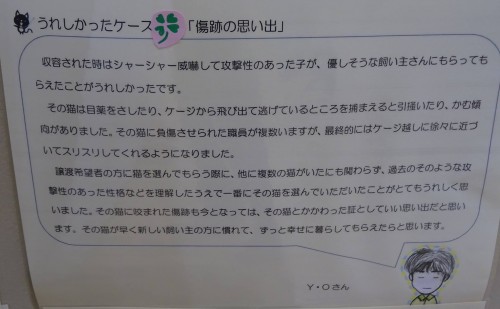 うれしかったケース 「傷跡の思い出」
収容された時はシャーシャー威嚇して攻撃性のあった子が、優しそうな飼い主さんにもらっても
らえたことがうれしかったです。
その猫は目薬をさしたり、ケージから飛び出て逃げているところを捕まえると引掻いたり、かむ傾
向がありました。その猫に負傷させられた職員が複数いますが、最終的にはケージ越しに徐々に近づ
いてスリスリしてくれるようになりました。
譲渡希望者の方に猫を選んでもらう際に、他に複数の猫がいたにも関わらず、過去のそのような攻
撃性のあった性格などを理解したうえで一番にその猫を選んでいただいたことがとてもうれしく思
いました。その猫に咬まれた傷跡も今となっては、その猫とかかわった証としていい思い出だと思い
ます。その猫が早く新しい飼い主の方に慣れて、ずっと幸せに暮らしてもらえたらと思います。
Y・Oさん